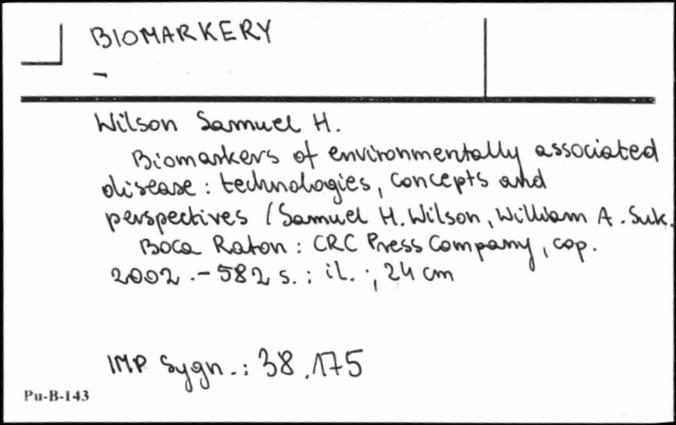 BIOMARKERY
-
Wilson Samuel H.
Biomarkers of environmentally associated
disease : technologies, concepts and
perspectives / Samuel H. Wilson, William A. Suk.
Boca Raton : CRC Press Company, cop.
2002 . - 582 s. : il. ; 24 cm
IMP Sygn. : 38.175
Pu-B-143